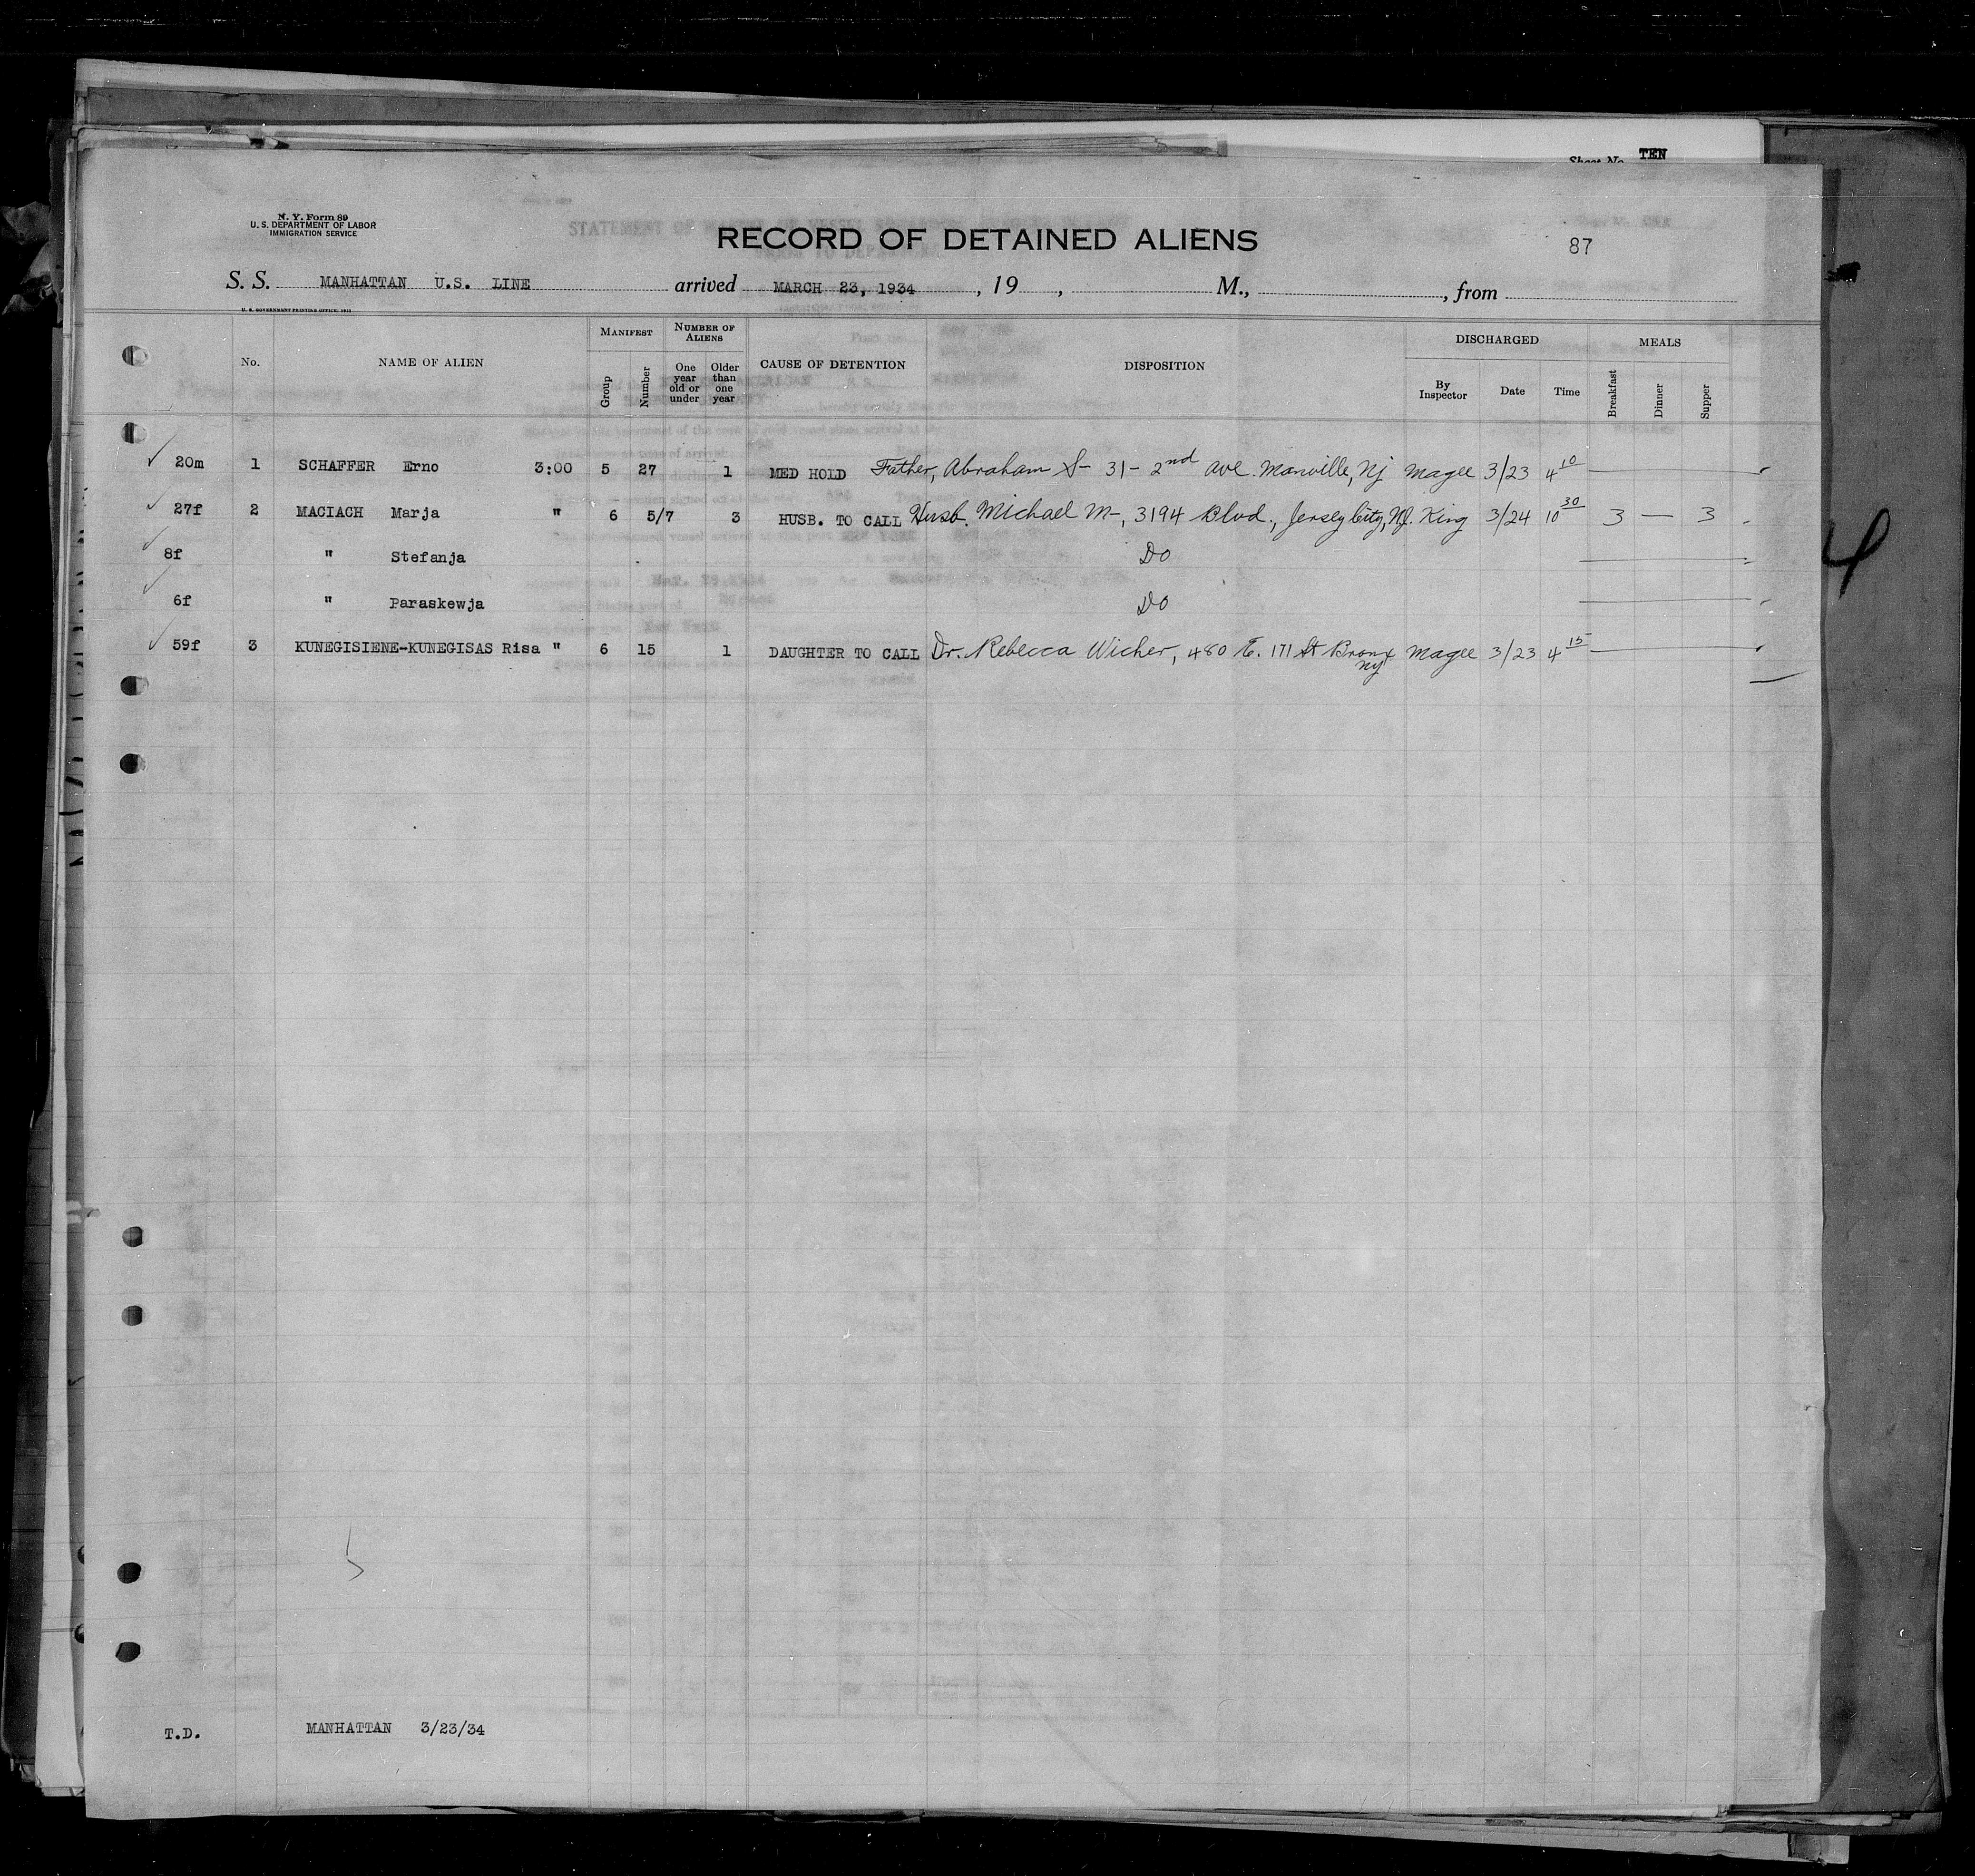 Sheet No. TEN
N. Y. Form 89
U. S. DEPARTMENT OF LABOR
IMMIGRATION SERVICE
RECORD OF DETAINED ALIENS
87
S. S. MANHATTAN U.S. LINE arrived MARCH 23, 1934, 19 , M., , from
U. S. GOVERNMENT PRINTING OFFICE: 1931
No. NAME OF ALIEN MANIFEST Group Number NUMBER OF ALIENS One year old or under Older than one year CAUSE OF DETENTION DISPOSITION DISCHARGED By Inspector Date Time MEALS Breakfast Dinner Supper
20m 1 SCHAFFER Erno 3:00 5 27 1 MED HOLD Father, Abraham S- 31- 2nd ave. Manville, Nj Magee 3/23 4 10
27f 2 MACIACH Marja " 6 5/7 3 HUSB. TO CALL Husb. Michael M-, 3194 Blvd., Jersey City, NJ. King 3/24 10 30 3 — 3
8f " Stefanja Do
6f " Paraskewja Do
59f 3 KUNEGISIENE-KUNEGISAS Risa " 6 15 1 DAUGHTER TO CALL Dr. Rebecca Wicher, 480 E. 171 St Bronx NY Magee 3/23 4 15
4
T.D. MANHATTAN 3/23/34